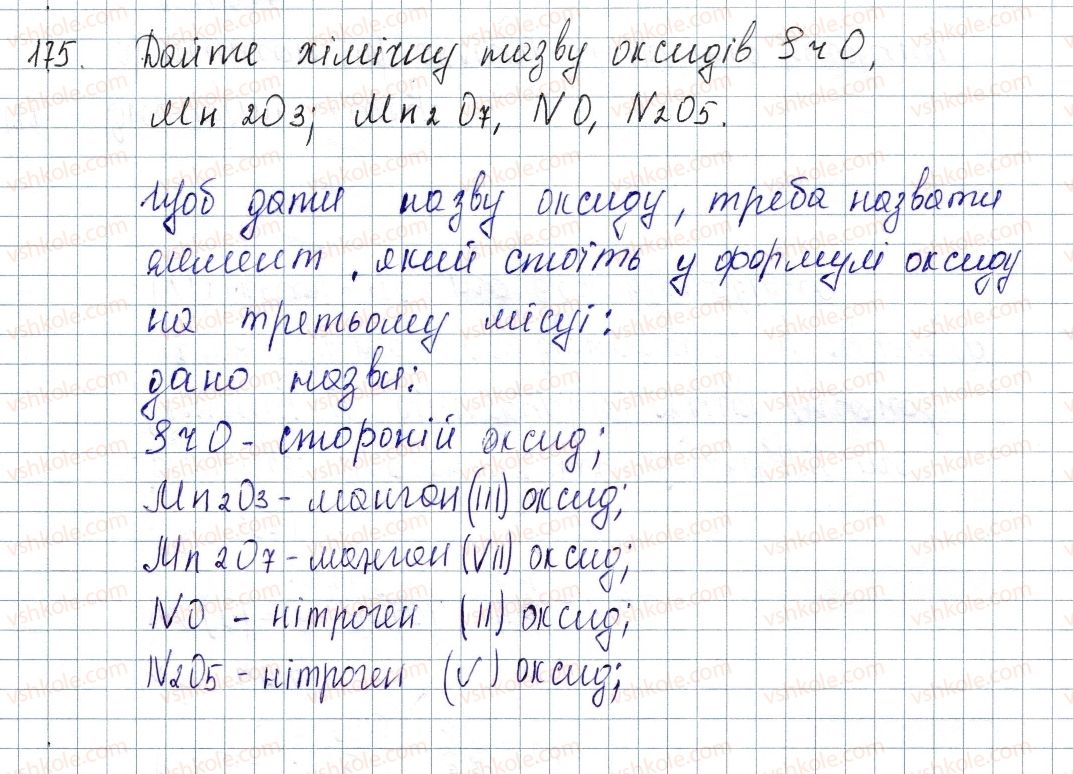 175. Дайте хімічну назву оксидів SrO,
Mn2O3; Mn2O7, NO, N2O5.
Щоб дати назву оксиду, треба назвати
елемент, який стоїть у формулі оксиду
на третьому місці:
дано назви:
SrO - стороній оксид;
Mn2O3 - манган (III) оксид;
Mn2O7 - манган (VII) оксид;
NO - нітроген (II) оксид;
N2O5 - нітроген (V) оксид;
vshkole.com